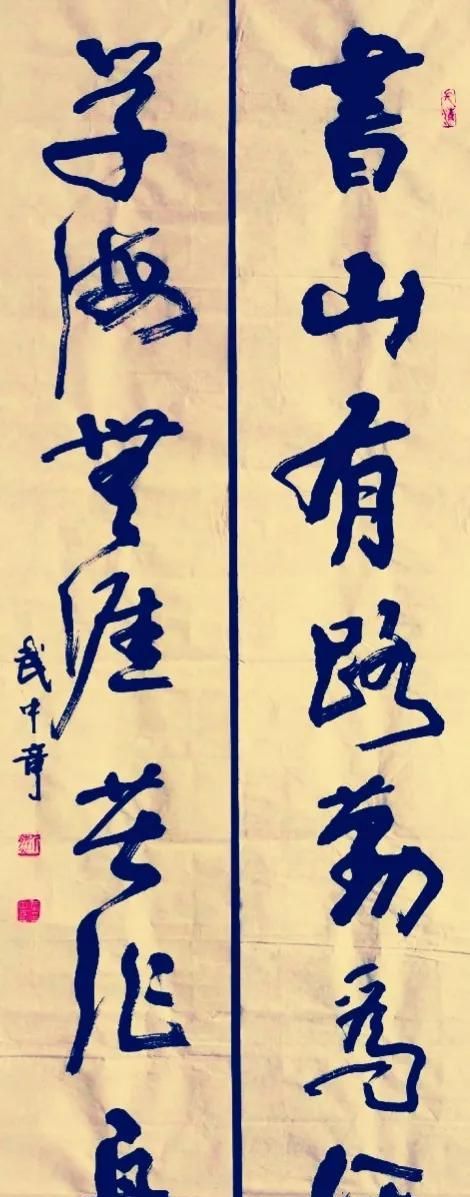 書山有路勤爲
学海無涯苦作
武中奇